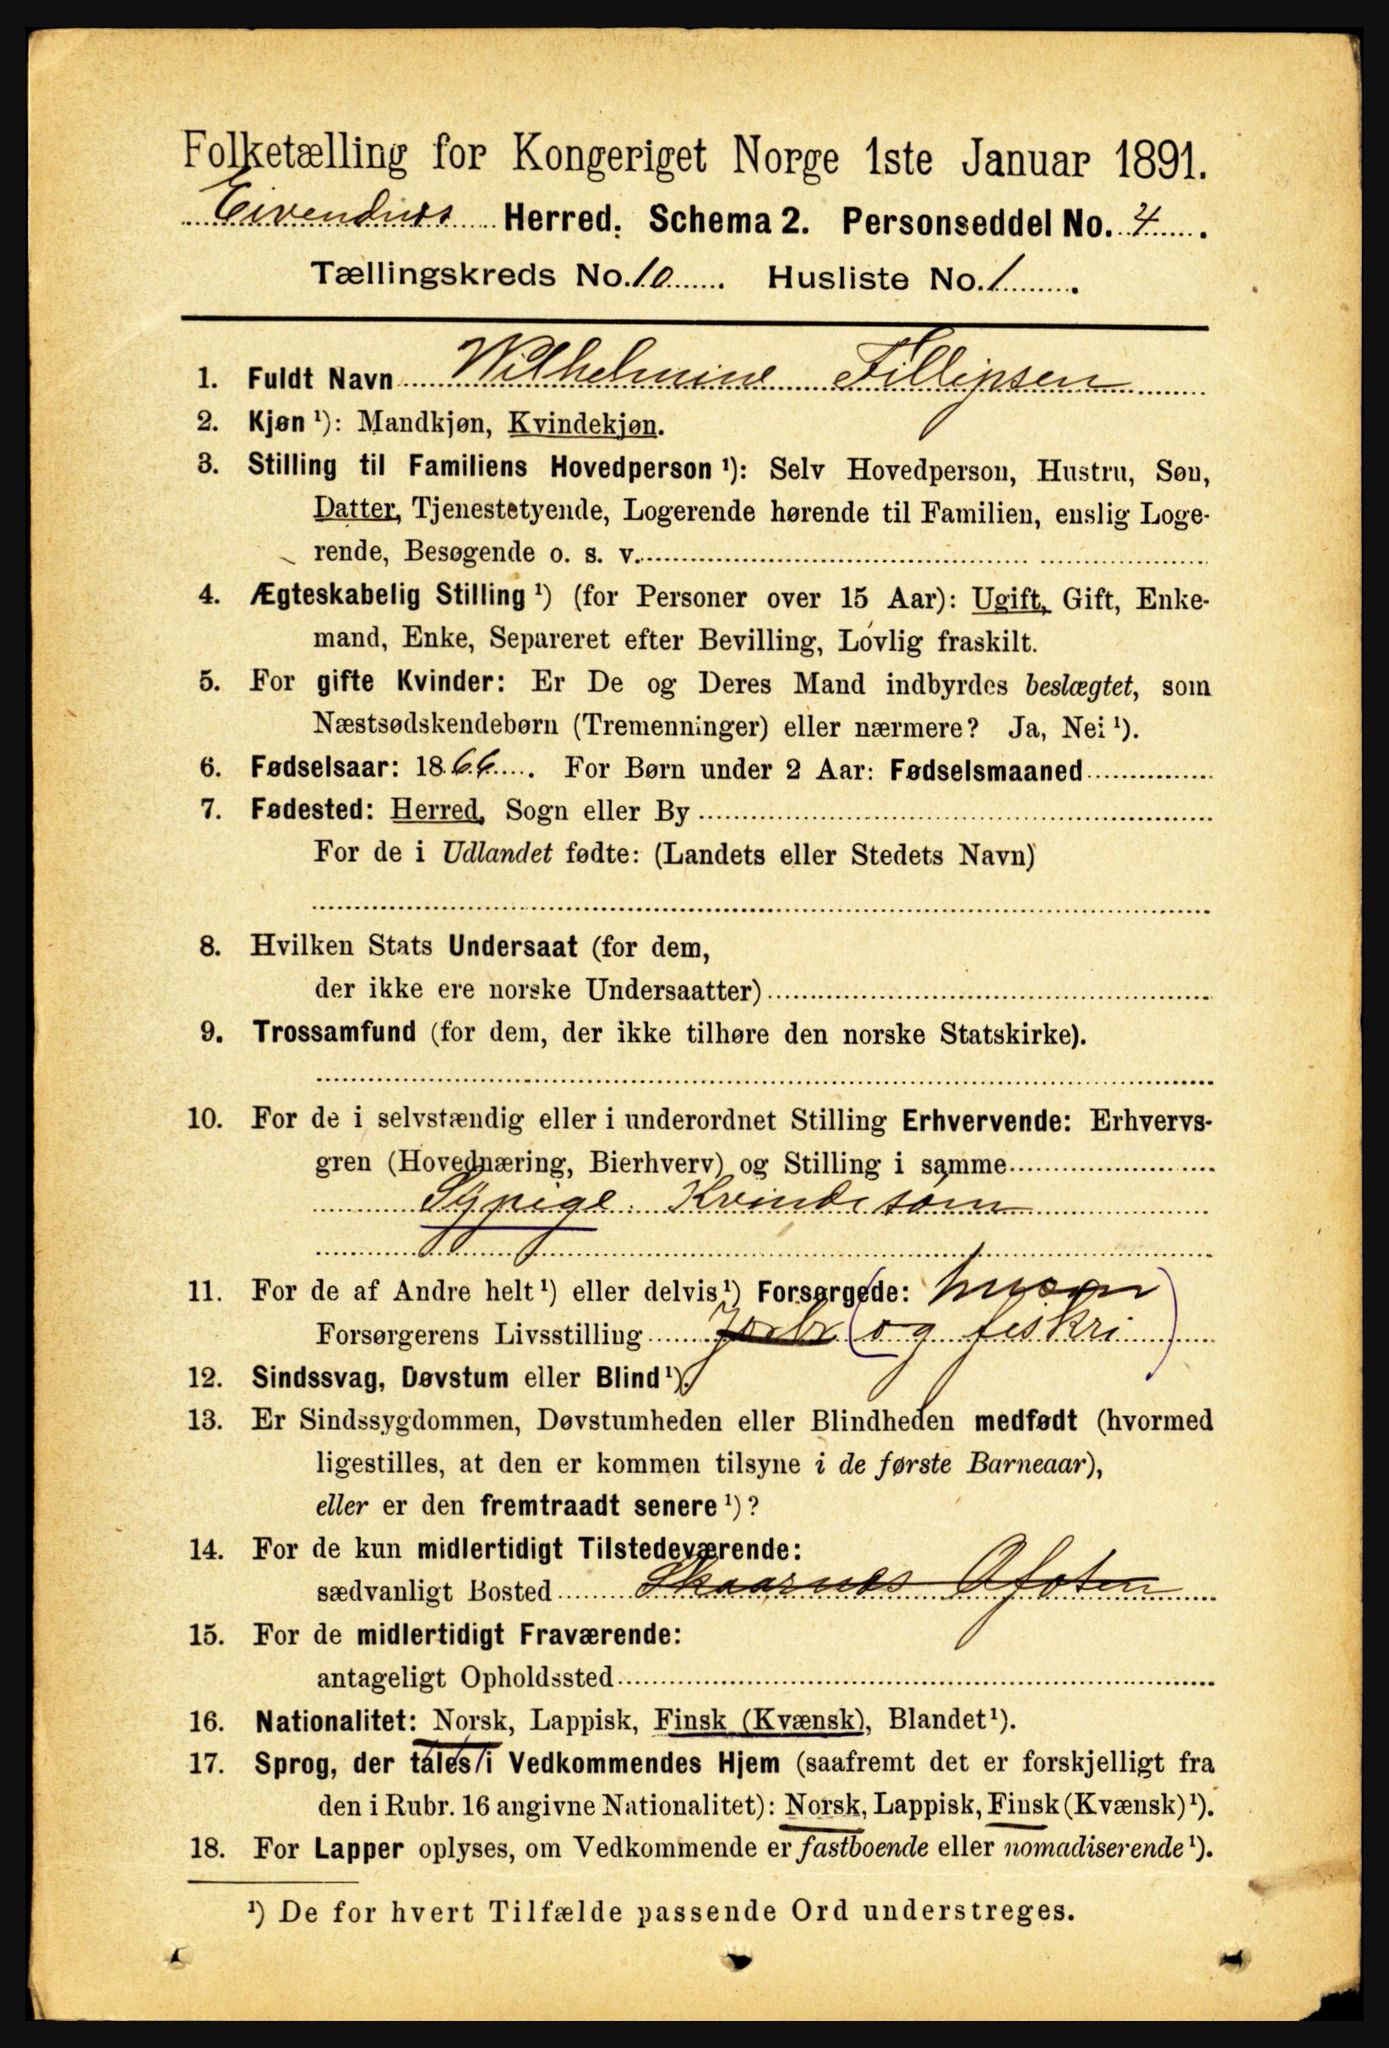 Folketælling for Kongeriget Norge 1ste Januar 1891.
Eivendnes Herred. Schema 2. Personseddel No. 4.
Tællingskreds No. 10. Husliste No. 1.
1. Fuldt Navn Wilhelmine Fillipsen
2. Kjøn ¹): Mandkjøn, Kvindekjøn.
3. Stilling til Familiens Hovedperson ¹): Selv Hovedperson, Hustru, Søn,
Datter, Tjenestetyende, Logerende hørende til Familien, enslig Loge-
rende, Besøgende o. s. v.
4. Ægteskabelig Stilling ¹) (for Personer over 15 Aar): Ugift, Gift, Enke-
mand, Enke, Separeret efter Bevilling, Lovlig fraskilt.
5. For gifte Kvinder: Er De og Deres Mand indbyrdes beslægtet, som
Næstsødskendebørn (Tremenninger) eller nærmere? Ja, Nei ¹).
6. Fødselsaar: 1866. For Børn under 2 Aar: Fødselsmaaned
7. Fødested: Herred, Sogn eller By
For de i Udlandet fødte: (Landets eller Stedets Navn)
8. Hvilken Stats Undersaat (for dem,
der ikke ere norske Undersaatter)
9. Trossamfund (for dem, der ikke tilhøre den norske Statskirke).
10. For de i selvstændig eller i underordnet Stilling Erhvervende: Erhvervs-
gren (Hovednæring, Bierhverv) og Stilling i samme
Sypige Kvindesøm
11. For de af Andre helt ¹) eller delvis ¹) Forsørgede:
Forsørgerens Livsstilling Jorbr (og fiskri)
12. Sindssvag, Døvstum eller Blind ¹).
13. Er Sindssygdommen, Døvstumheden eller Blindheden medfødt (hvormed
ligestilles, at den er kommen tilsyne i de første Barneaar),
eller er den fremtraadt senere ¹)?
14. For de kun midlertidigt Tilstedeværende:
sædvanligt Bosted Skaarnes Ofoten
15. For de midlertidigt Fraværende:
antageligt Opholdssted
16. Nationalitet: Norsk, Lappisk, Finsk (Kvænsk), Blandet ¹).
17. Sprog, der tales i Vedkommendes Hjem (saafremt det er forskjelligt fra
den i Rubr. 16 angivne Nationalitet): Norsk, Lappisk, Finsk (Kvænsk) ¹).
18. For Lapper oplyses, om Vedkommende er fastboende eller nomadiserende ¹).
¹) De for hvert Tilfælde passende Ord understreges.